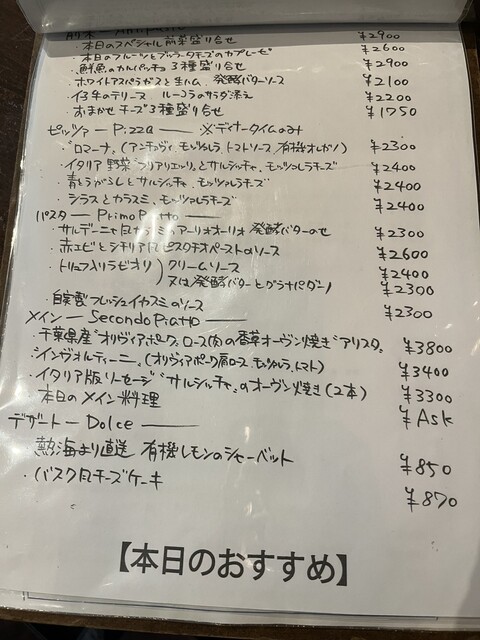 前菜 — Antipasto
・本日のスペシャル前菜盛り合せ ¥2900
・本日のフルーツとブッラータチーズのカプレーゼ ¥2600
・鮮魚のカルパッチョ 3種盛り合せ ¥2900
・ホワイトアスパラガスと生ハム、発酵バターソース ¥2100
・仔牛のテリーヌ ルーコラのサラダ添え ¥2200
・おまかせチーズ3種盛り合せ ¥1750
ピッツァ — Pizza — ※ディナータイムのみ
・"ロマーナ" (アンチョヴィ、モッツァレラ、トマトソース/有機オレガノ) ¥2300
・イタリア野菜"フリアリエッリ"とサルシッチャ、モッツァレラチーズ ¥2400
・青とうがらしとサルシッチャ、モッツァレラチーズ ¥2400
・シラスとカラスミ、モッツァレラチーズ ¥2400
パスタ — Primo Piatto —
・サルデーニャ風カラスミのアーリオオーリオ 発酵バターのせ ¥2300
・赤エビとシチリア風ピスタチオペーストのソース ¥2600
・トリュフ入りラビオリ クリームソース ¥2400
又は発酵バターとグラナパダーノ ¥2300
・自家製フレッシュイカスミのソース ¥2300
メイン — Secondo Piatto —
・千葉県産"オリヴィアポーク"ロース肉の香草オーヴン焼き"アリスタ" ¥3800
・インヴォルティーニ (オリヴィアポーク肩ロース、モッツァレラ、トマト) ¥3400
・イタリア版ソーセージ"サルシッチャ"のオーヴン焼き(2本) ¥3300
本日のメイン料理 ¥Ask
デザート — Dolce —
熱海より直送 有機レモンのシャーベット ¥850
・バスク風チーズケーキ ¥870
【本日のおすすめ】